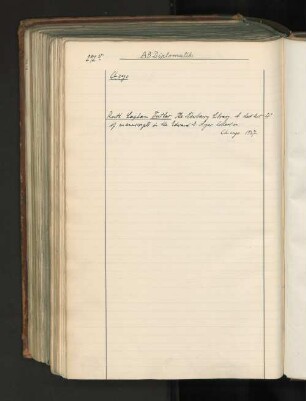 A3 Diplomatik
Chicago
Ruth Lapham Butler The Newberry Library. A check list
of manuscripts in the Edward E. Ayer Collection
Chicago 1937